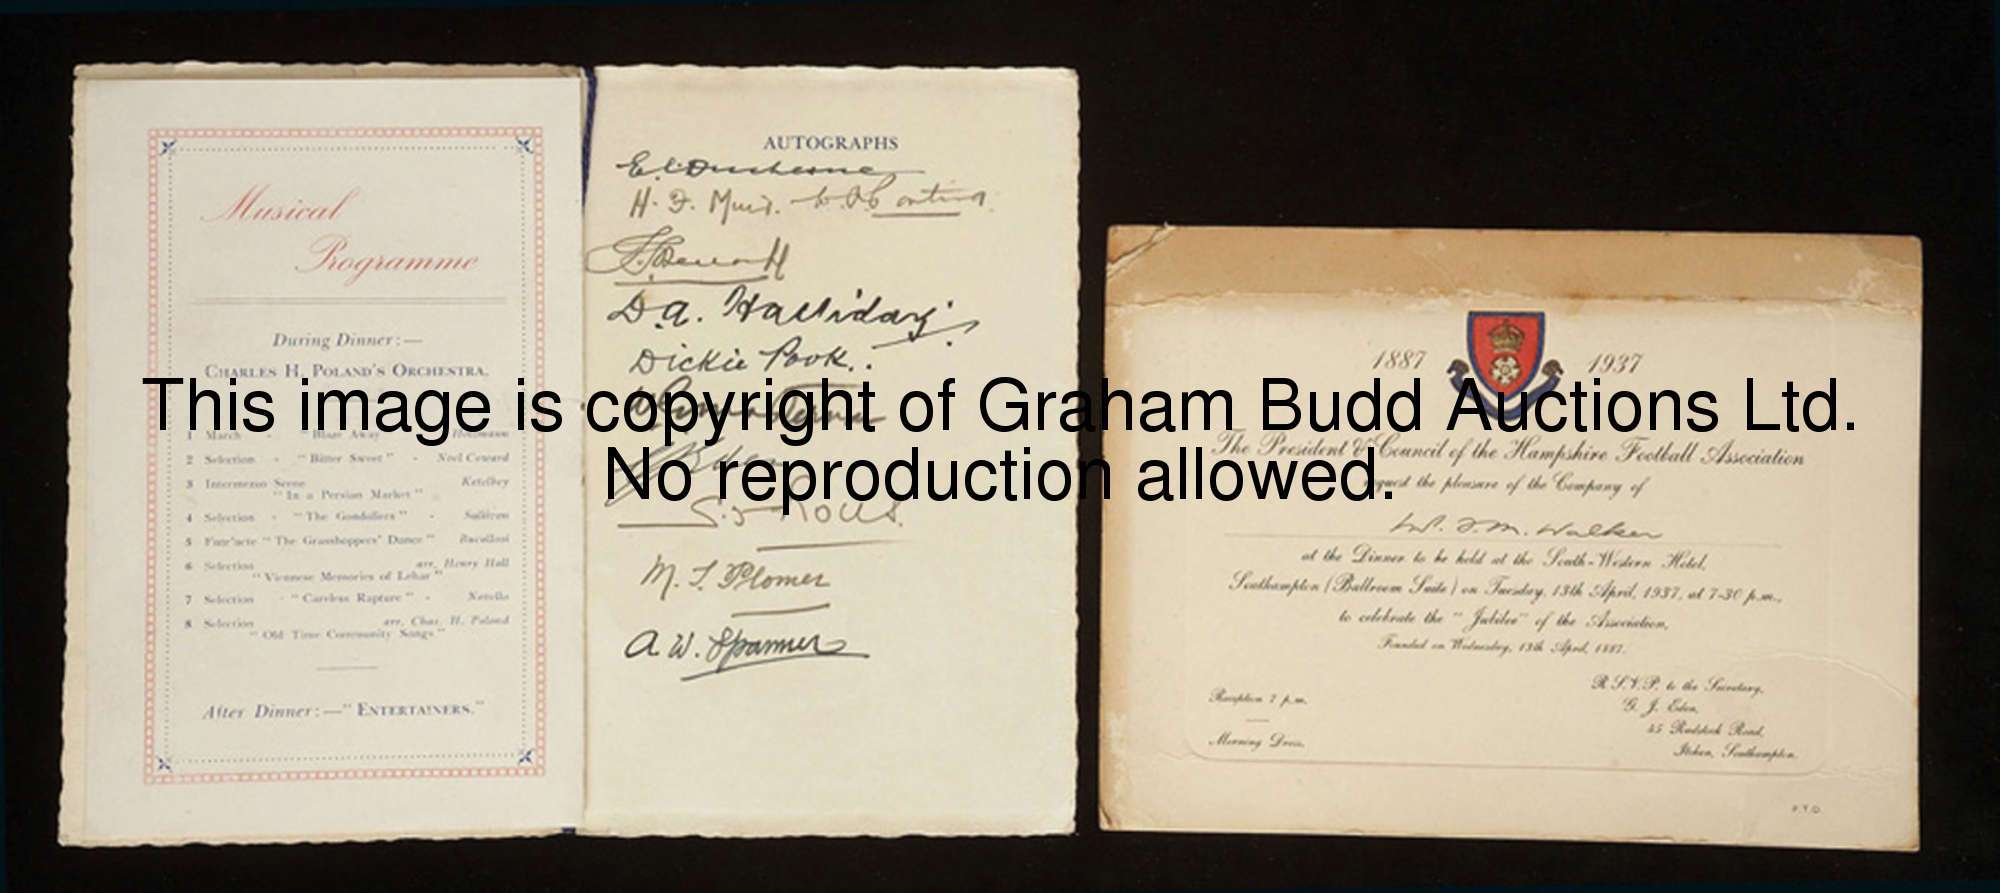 Musical
Programme
During Dinner:—
CHARLES H. POLAND'S ORCHESTRA.
1 March - "Blaze Away" Holzmann
2 Selection - "Bitter Sweet" - Noel Coward
3 Intermezzo Scene Ketelbey
"In a Persian Market"
4 Selection - "The Gondoliers" - Sullivan
5 Entr'acte "The Grasshoppers' Dance" Bucalossi
6 Selection arr. Henry Hall
"Viennese Memories of Lehar"
7 Selection - "Careless Rapture" - Novello
8 Selection arr. Chas. H. Poland
"Old Time Community Songs."
After Dinner:—"ENTERTAINERS."
AUTOGRAPHS
H. F. Muir.
D.A. Halliday
Dickie Pook.
S. F. Rous.
M. J. Plomer
A W. Spanner
1887 1937
The President & Council of the Hampshire Football Association
request the pleasure of the Company of
W. J. M. Walker
at the Dinner to be held at the South-Western Hotel,
Southampton (Ballroom Suite) on Tuesday, 13th April, 1937, at 7-30 p.m.,
to celebrate the "Jubilee" of the Association,
Founded on Wednesday, 13th April, 1887.
Reception 7 p.m.
Morning Dress.
R.S.V.P. to the Secretary,
G. J. Eden,
Road,
Itchen, Southampton.
P.T.O.
This image is copyright of Graham Budd Auctions Ltd.
No reproduction allowed.